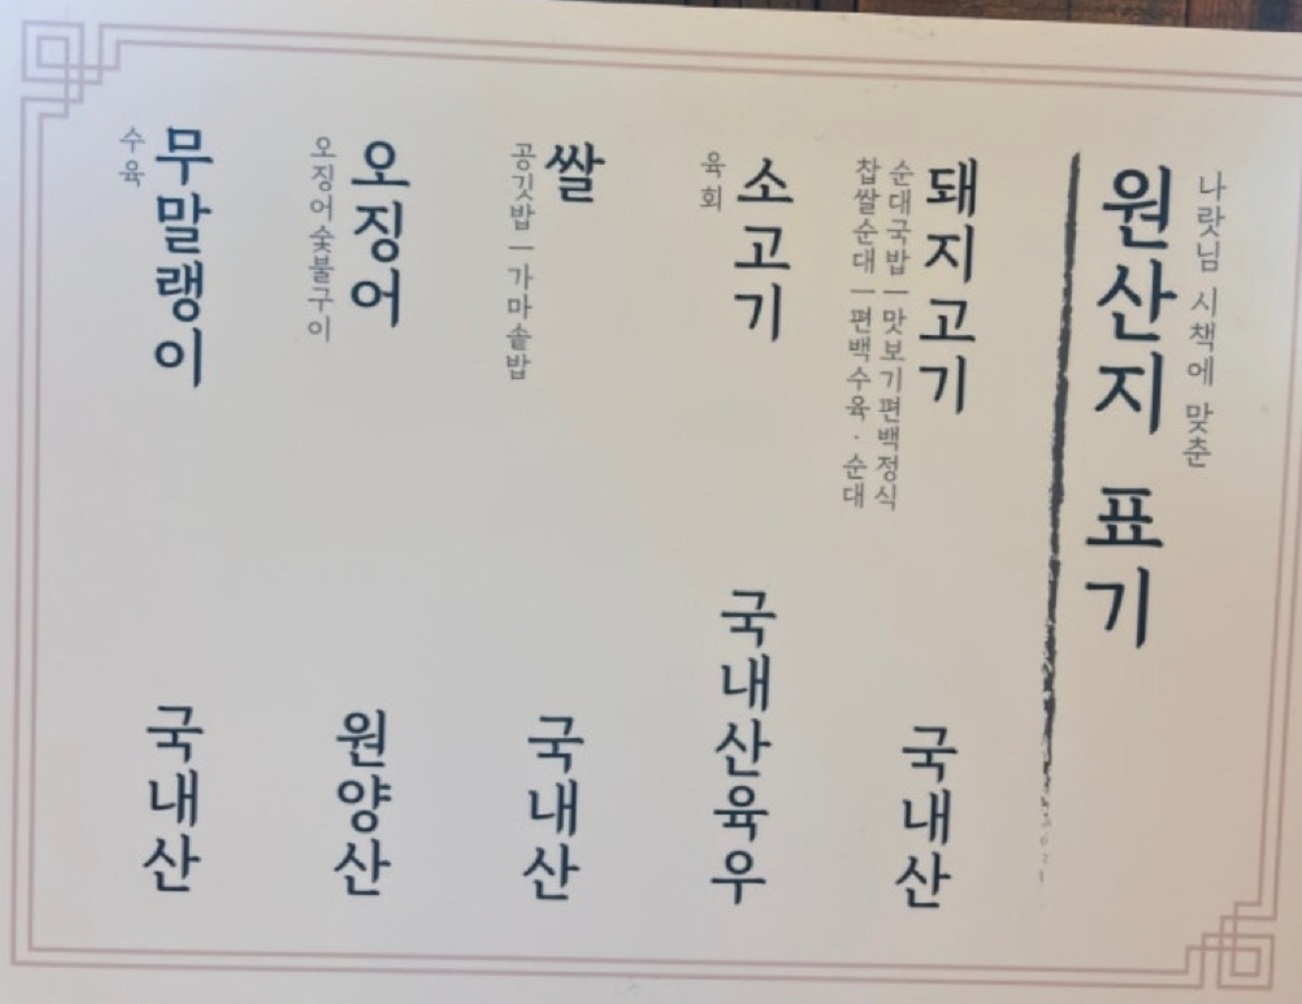 나랏님 시책에 맞춘
원산지 표기
돼지고기
순대국밥ㅣ맛보기편백정식
찹쌀순대ㅣ편백수육·순대
국내산
소고기
육회
국내산육우
쌀
공깃밥ㅣ가마솥밥
국내산
오징어
오징어숯불구이
원양산
무말랭이
수육
국내산